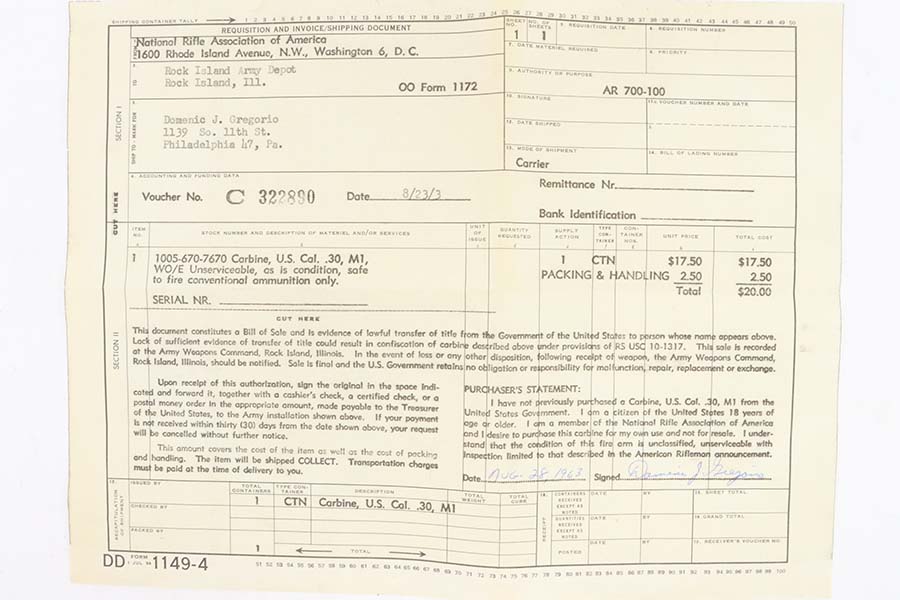 SHIPPING CONTAINER TALLY 1 2 3 4 5 6 7 8 9 10 11 12 13 14 15 16 17 18 19 20 21 22 23 24 25 26 27 28 29 30 31 32 33 34 35 36 37 38 39 40 41 42 43 44 45 46 47 48 49 50
REQUISITION AND INVOICE/SHIPPING DOCUMENT
SHEET NO. 1
NO. OF SHEETS 1
5. REQUISITION DATE
6. REQUISITION NUMBER
FROM
National Rifle Association of America
1600 Rhode Island Avenue, N.W., Washington 6, D. C.
7. DATE MATERIEL REQUIRED
8. PRIORITY
TO
Rock Island Army Depot
Rock Island, Ill.
OO Form 1172
9. AUTHORITY OR PURPOSE
AR 700-100
10. SIGNATURE
11a. VOUCHER NUMBER AND DATE
SECTION I
SHIP TO - MARK FOR
Domenic J. Gregorio
1139 So. 11th St.
Philadelphia 47, Pa.
12. DATE SHIPPED
13. MODE OF SHIPMENT
Carrier
14. BILL OF LADING NUMBER
4. ACCOUNTING AND FUNDING DATA
Voucher No. C 322890 Date 8/23/3
Remittance Nr.
Bank Identification
CUT HERE
ITEM NO.
STOCK NUMBER AND DESCRIPTION OF MATERIEL AND/OR SERVICES
UNIT OF ISSUE
QUANTITY REQUESTED
SUPPLY ACTION
TYPE CON- TAINER
CON- TAINER NOS.
UNIT PRICE
TOTAL COST
1 1005-670-7670 Carbine, U.S. Cal. .30, M1, 1 CTN $17.50 $17.50
WO/E Unserviceable, as is condition, safe PACKING & HANDLING 2.50 2.50
to fire conventional ammunition only. Total $20.00
SERIAL NR.
CUT HERE
SECTION II
This document constitutes a Bill of Sale and is evidence of lawful transfer of title from the Government of the United States to person whose name appears above.
Lack of sufficient evidence of transfer of title could result in confiscation of carbine described above under provisions of RS USC 10-1317. This sale is recorded
at the Army Weapons Command, Rock Island, Illinois. In the event of loss or any other disposition, following receipt of weapon, the Army Weapons Command,
Rock Island, Illinois, should be notified. Sale is final and the U.S. Government retains no obligation or responsibility for malfunction, repair, replacement or exchange.
Upon receipt of this authorization, sign the original in the space indi-
cated and forward it, together with a cashier's check, a certified check, or a
postal money order in the appropriate amount, made payable to the Treasurer
of the United States, to the Army installation shown above. If your payment
is not received within thirty (30) days from the date shown above, your request
will be cancelled without further notice.
This amount covers the cost of the item as well as the cost of packing
and handling. The item will be shipped COLLECT. Transportation charges
must be paid at time of delivery to you.
PURCHASER'S STATEMENT:
I have not previously purchased a Carbine, U.S. Cal. .30, M1 from the
United States Government. I am a citizen of the United States 18 years of
age or older. I am a member of the National Rifle Association of America
and I desire to purchase this carbine for my own use and not for resale. I under-
stand that the condition of this fire arm is unclassified, unserviceable with
inspection limited to that described in the American Rifleman announcement.
Date Aug. 28, 1963 Signed Domenic J. Gregorio
RECAPITULATION OF SHIPMENT
ISSUED BY
TOTAL CONTAINERS
TYPE CON- TAINER
DESCRIPTION
TOTAL WEIGHT
TOTAL CUBE
1 CTN Carbine, U.S. Cal. .30, M1
CHECKED BY
PACKED BY
1 TOTAL
RECEIPT
CONTAINERS RECEIVED EXCEPT AS NOTED
DATE BY SHEET TOTAL
QUANTITIES RECEIVED EXCEPT AS NOTED
DATE BY GRAND TOTAL
POSTED
DATE BY RECEIVER'S VOUCHER NO.
DD FORM 1 JUL 1149-4
51 52 53 54 55 56 57 58 59 60 61 62 63 64 65 66 67 68 69 70 71 72 73 74 75 76 77 78 79 80 81 82 83 84 85 86 87 88 89 90 91 92 93 94 95 96 97 98 99 100